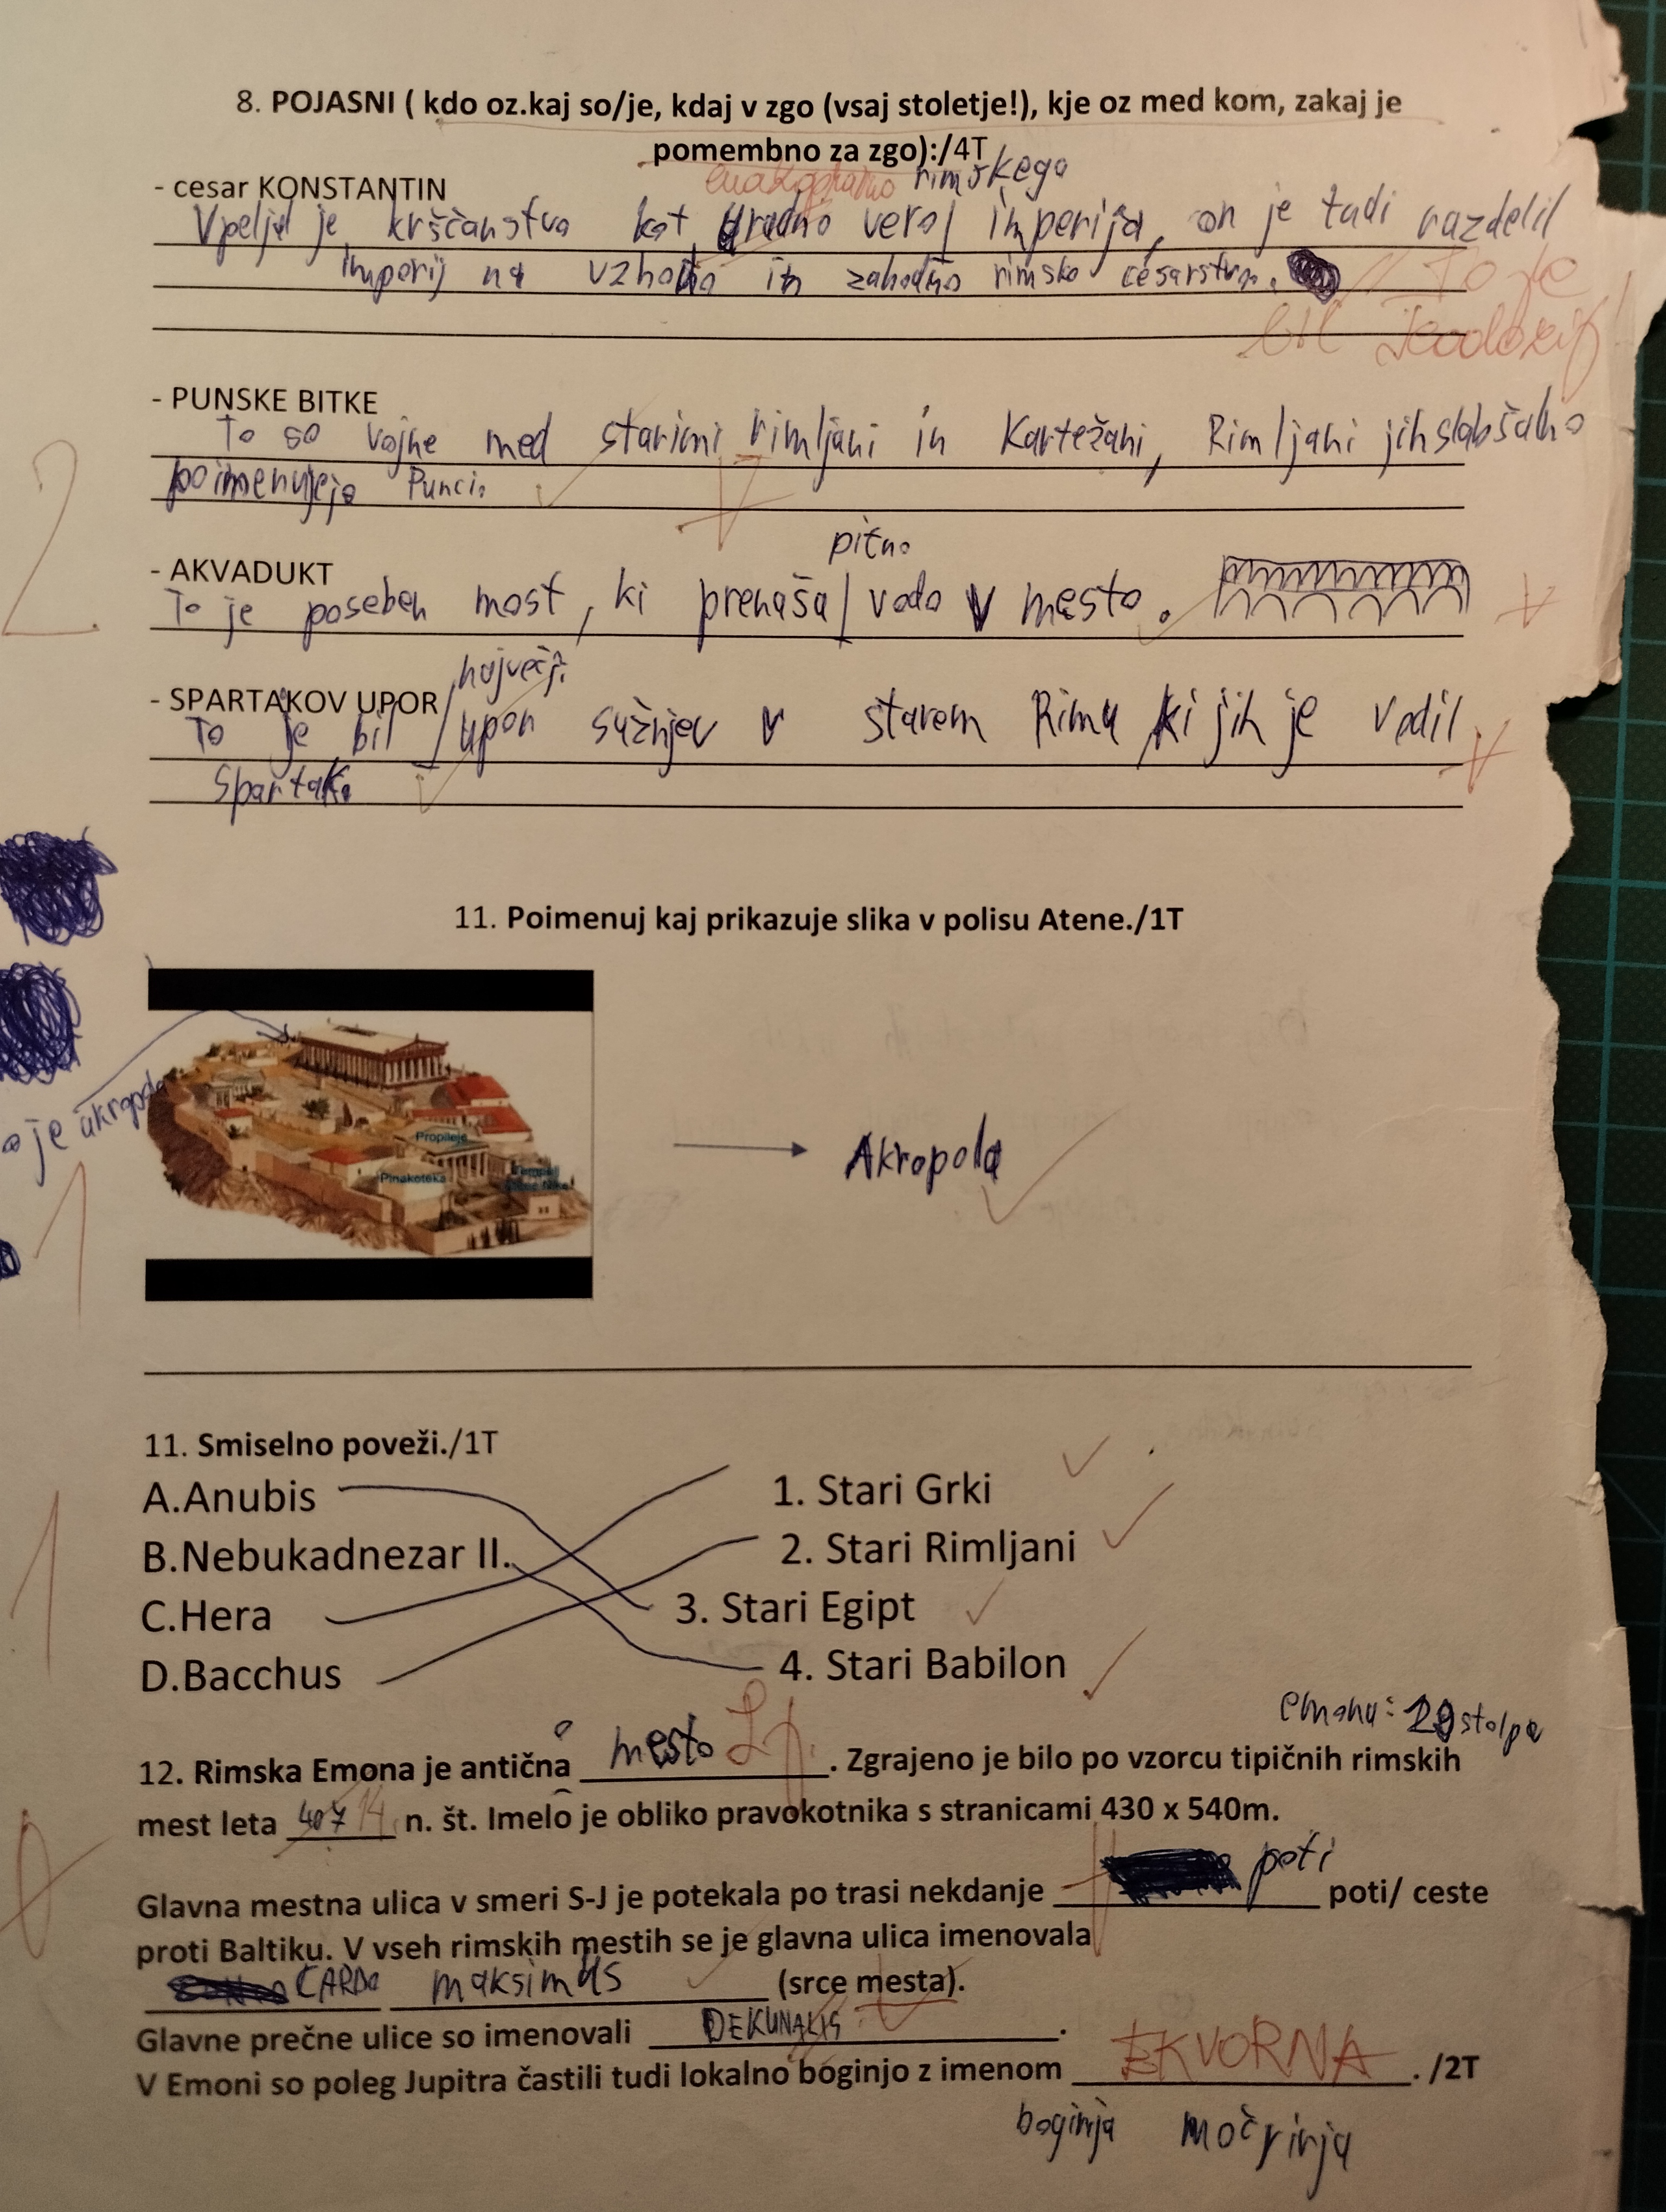 8. POJASNI ( kdo oz.kaj so/je, kdaj v zgo (vsaj stoletje!), kje oz med kom, zakaj je
pomembno za zgo):/4T
- cesar KONSTANTIN
enakopravno rimskega
Vpeljal je krščanstvo kot uradno vero imperija, on je tudi razdelil
imperij na vzhodno in zahodno rimsko cesarstvo.
To je
bil Teodozij!
- PUNSKE BITKE
To so vojne med starimi rimljani in Kartežani, Rimljani jih slabšalno
poimenujejo Punci.
2
- AKVADUKT
pitno
To je poseben most, ki prenaša vodo v mesto.
- SPARTAKOV UPOR
največji
To je bil upor sužnjev v starem Rimu ki jih je vodil
Spartak.
11. Poimenuj kaj prikazuje slika v polisu Atene./1T
je akropola
Propileje
Pinakoteka
Akropola
1
11. Smiselno poveži./1T
A.Anubis
1. Stari Grki
B.Nebukadnezar II.
2. Stari Rimljani
C.Hera
3. Stari Egipt
D.Bacchus
4. Stari Babilon
1
emona: 29 stolpa
12. Rimska Emona je antična mesto. Zgrajeno je bilo po vzorcu tipičnih rimskih
mest leta 407 14. n. št. Imelo je obliko pravokotnika s stranicami 430 x 540m.
0
Glavna mestna ulica v smeri S-J je potekala po trasi nekdanje poti poti/ ceste
proti Baltiku. V vseh rimskih mestih se je glavna ulica imenovala
CARDO maksimus (srce mesta).
Glavne prečne ulice so imenovali DEKUNALIS.
V Emoni so poleg Jupitra častili tudi lokalno boginjo z imenom EKVORNA. /2T
boginja močvirja